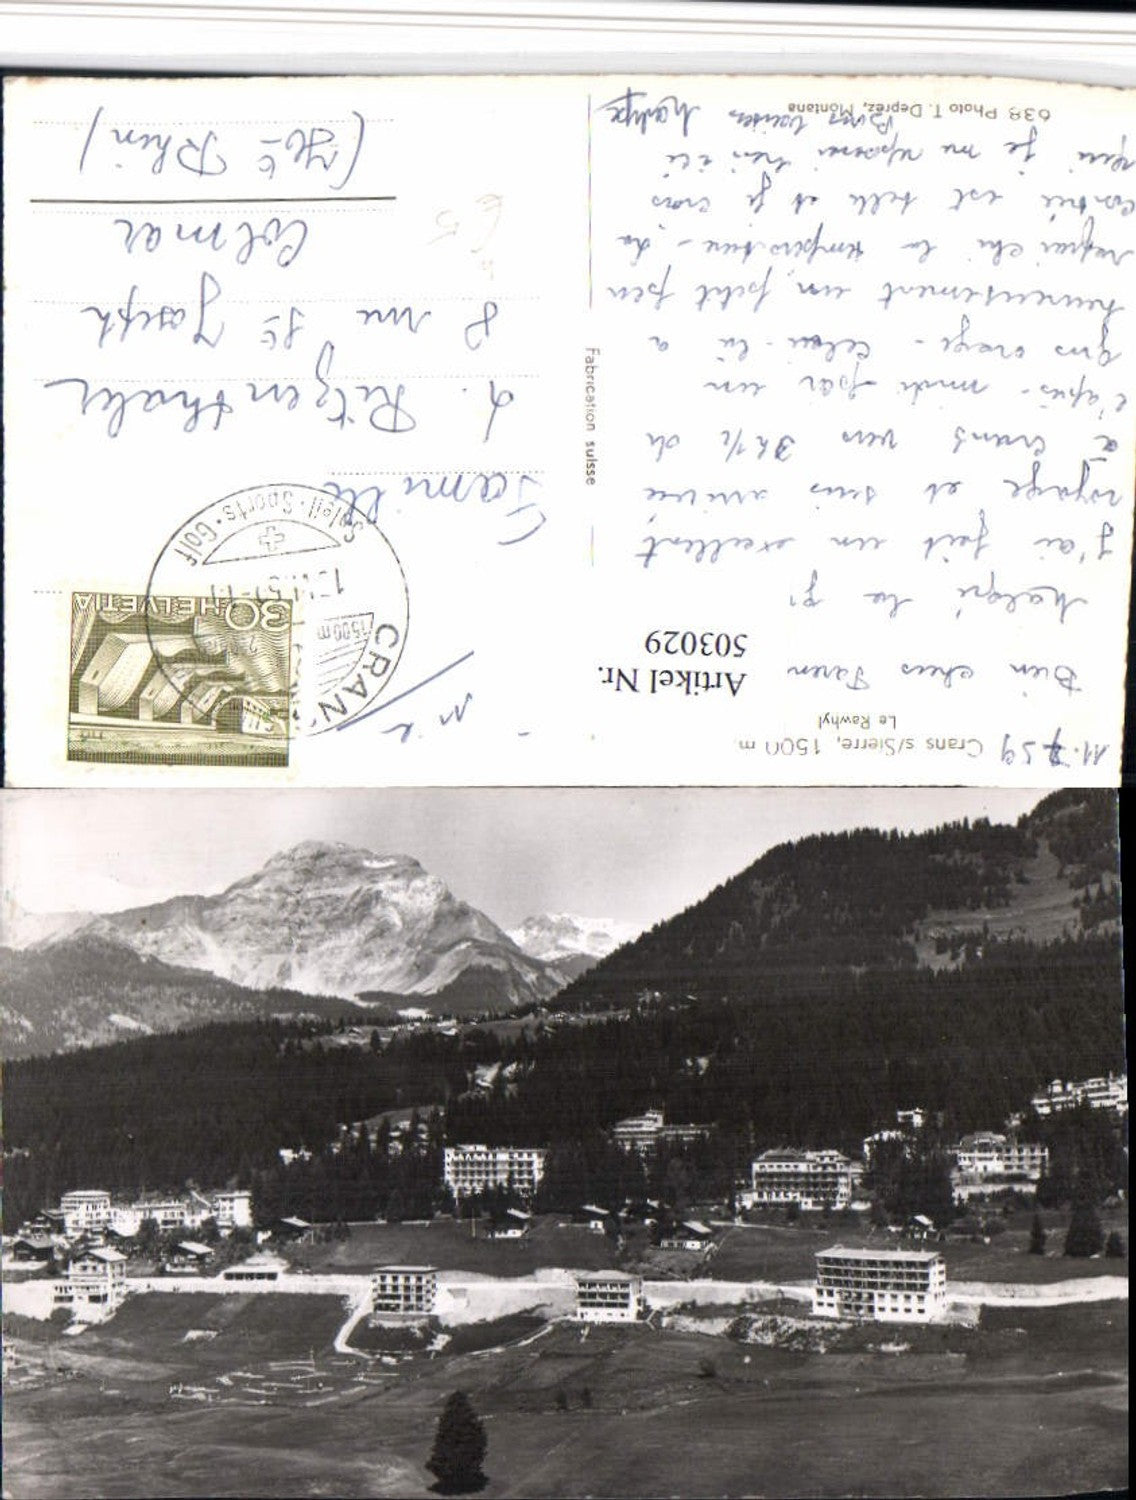 Crans s/Sierre, 1500 m
Le Rawhyl
11.7 59
Bien chers Tous
Malgré la
J'ai fait un excellent
voyage et suis arrivé
à Crans vers 3h 1/2 de
l'après-midi par un
gros orage - Celui-là a
heureusement un petit peu
rafraichi la température - La
contrée est belle et je crois
que je me reposerai ici
Bons baisers
638 Photo T. Deprez, Montana
Fabrication suisse
Artikel Nr.
503029
CRANS
1500 m
Soleil · Sports · Golf
30 HELVETIA
Famille
L. Ritzenthaler
8 rue St Joseph
Colmar
(Ht Rhin)